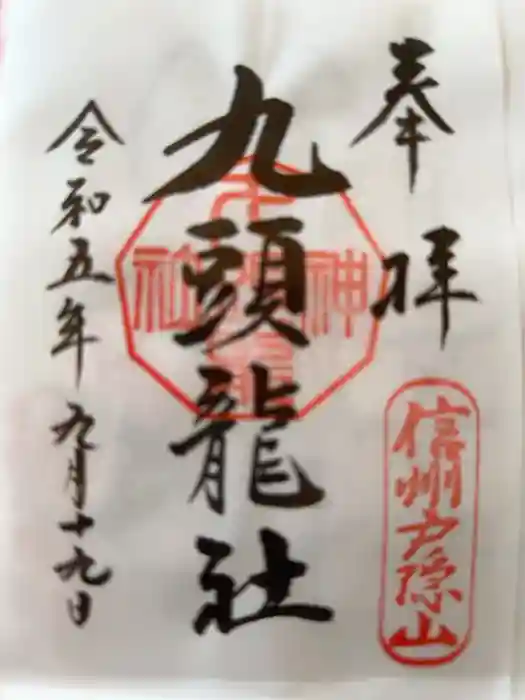 奉拝
信州戸隠山
九頭龍社
令和五年九月十九日